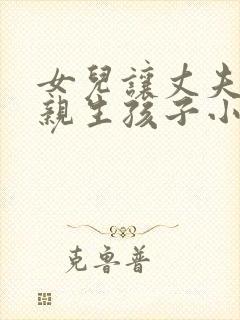 女兒讓丈夫
親生孩子小
克魯普